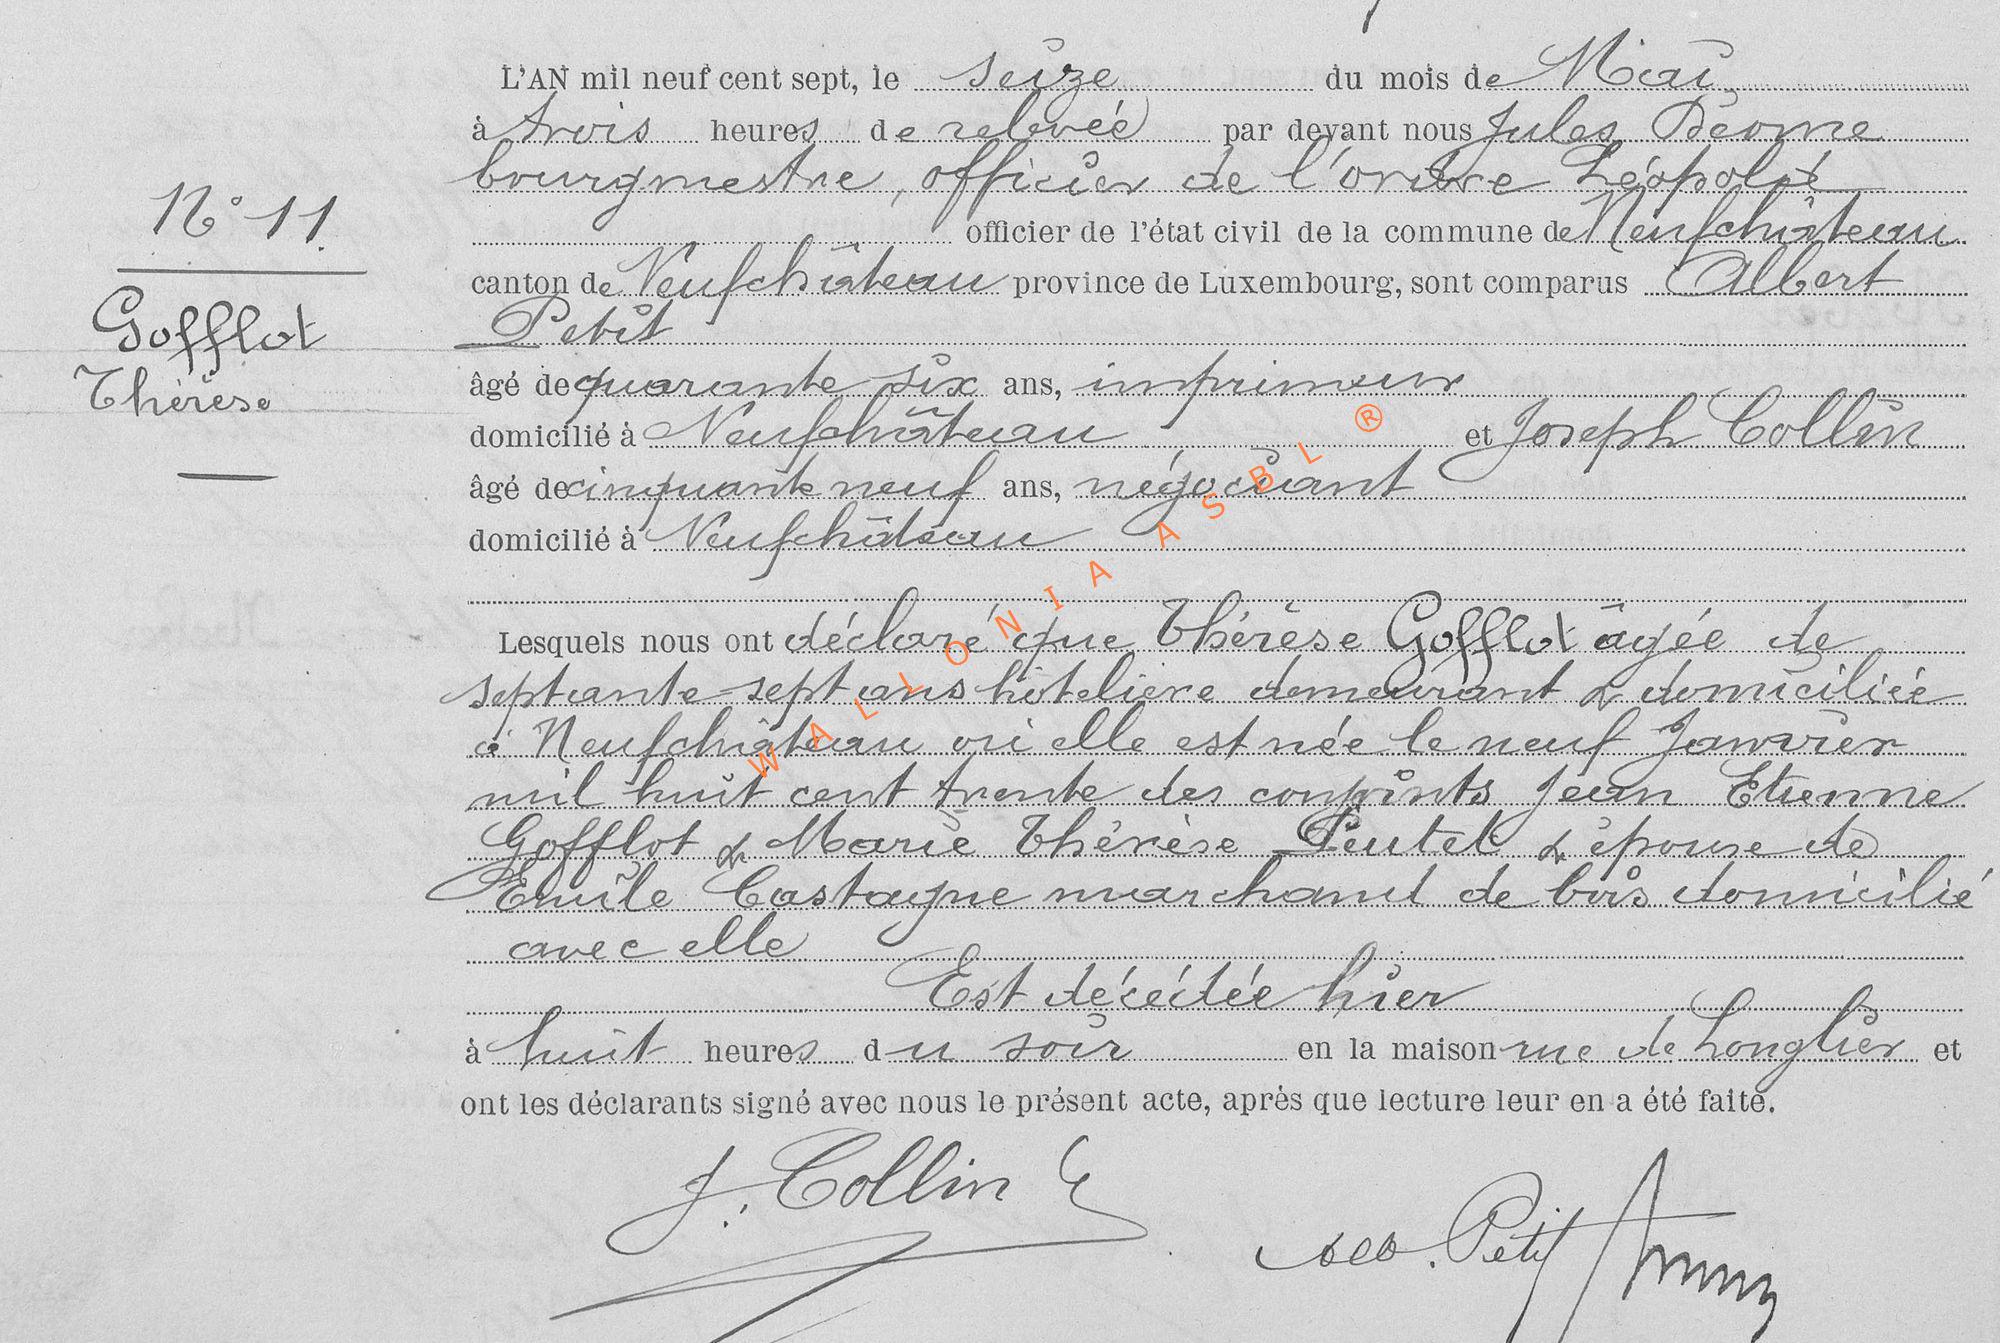 L'AN mil neuf cent sept, le seize du mois de Mai,
à trois heures de relevée par devant nous Jules
bourgmestre, officier de l'ordre Léopold
N° 11.
officier de l'état civil de la commune de Neufchâteau
canton de Neufchâteau province de Luxembourg, sont comparus Albert
Gofflot
Petit
Thérèse
âgé de quarante six ans, imprimeur
domicilié à Neufchâteau et Joseph Collin
âgé de cinquante neuf ans, négociant
domicilié à Neufchâteau
WALLONIA ASBL ®
Lesquels nous ont déclaré que Thérèse Gofflot âgée de
septante-sept ans hôtelière demeurant & domiciliée
à Neufchâteau où elle est née le neuf Janvier
mil huit cent trente des conjoints Jean Etienne
Gofflot & Marie Thérèse Peutet & épouse de
Emile Castagne marchand de bois domicilié
avec elle
Est décédée hier
à huit heures du soir en la maison rue de Longlier et
ont les déclarants signé avec nous le présent acte, après que lecture leur en a été faite.
J. Collin
Petit